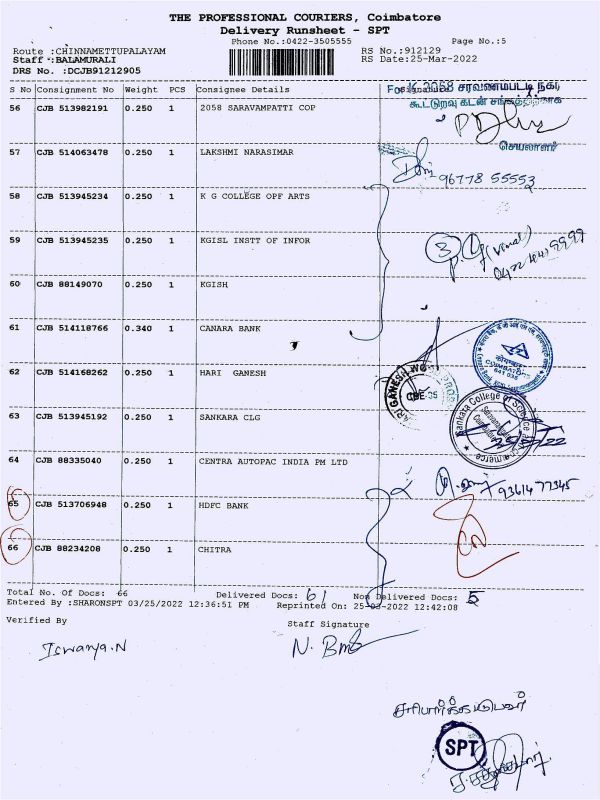 THE PROFESSIONAL COURIERS, Coimbatore
Delivery Runsheet - SPT
Phone No.:0422-3505555 Page No.:5
Route :CHINNAMETTUPALAYAM RS No.:912129
Staff :BALAMURALI RS Date:25-Mar-2022
DRS No. :DCJB91212905
S No Consignment No Weight PCS Consignee Details
For K.2058 சரவணம்பட்டி நகர
கூட்டுறவு கடன் சங்கத்திற்காக
56 CJB 513982191 0.250 1 2058 SARAVAMPATTI COP
செயலாளர்
57 CJB 514063478 0.250 1 LAKSHMI NARASIMAR
96778 55553
58 CJB 513945234 0.250 1 K G COLLEGE OPF ARTS
59 CJB 513945235 0.250 1 KGISL INSTT OF INFOR
3
60 CJB 88149070 0.250 1 KGISH
61 CJB 514118766 0.340 1 CANARA BANK
COIMBATORE
641 035
62 CJB 514168262 0.250 1 HARI GANESH
HARI GANESH
CBE-35
63 CJB 513945192 0.250 1 SANKARA CLG
Sankara College of Science and Commerce
64 CJB 88335040 0.250 1 CENTRA AUTOPAC INDIA PM LTD
93614 77345
65 CJB 513706948 0.250 1 HDFC BANK
66 CJB 88234208 0.250 1 CHITRA
Total No. Of Docs: 66 Delivered Docs: 61 Non Delivered Docs: 5
Entered By :SHARONSPT 03/25/2022 12:36:51 PM Reprinted On: 25-03-2022 12:42:08
Verified By Staff Signature
Iswarya.N N. Bm
சரிபார்க்கப்பட்டவர்
SPT